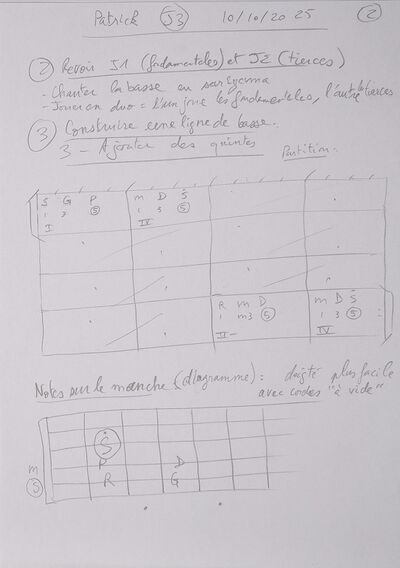 Patrick J3 10/10/2025 2
2 Revoir J1 (fondamentales) et J2 (tierces)
- Chanter la basse en sargam
- Jouer en duo = l'un joue les fondamentales, l'autre les tierces
3 Construire une ligne de basse.
3 - Ajouter des quintes Partition:
S G P m D Ṡ
1 3 5 1 3 5
I IV
R m D m D Ṡ
1 m3 5 1 3 5 :
II- IV
Notes sur le manche (diagramme) : doigté plus facile
avec cordes "à vide"
Ṡ
m P D
S R G